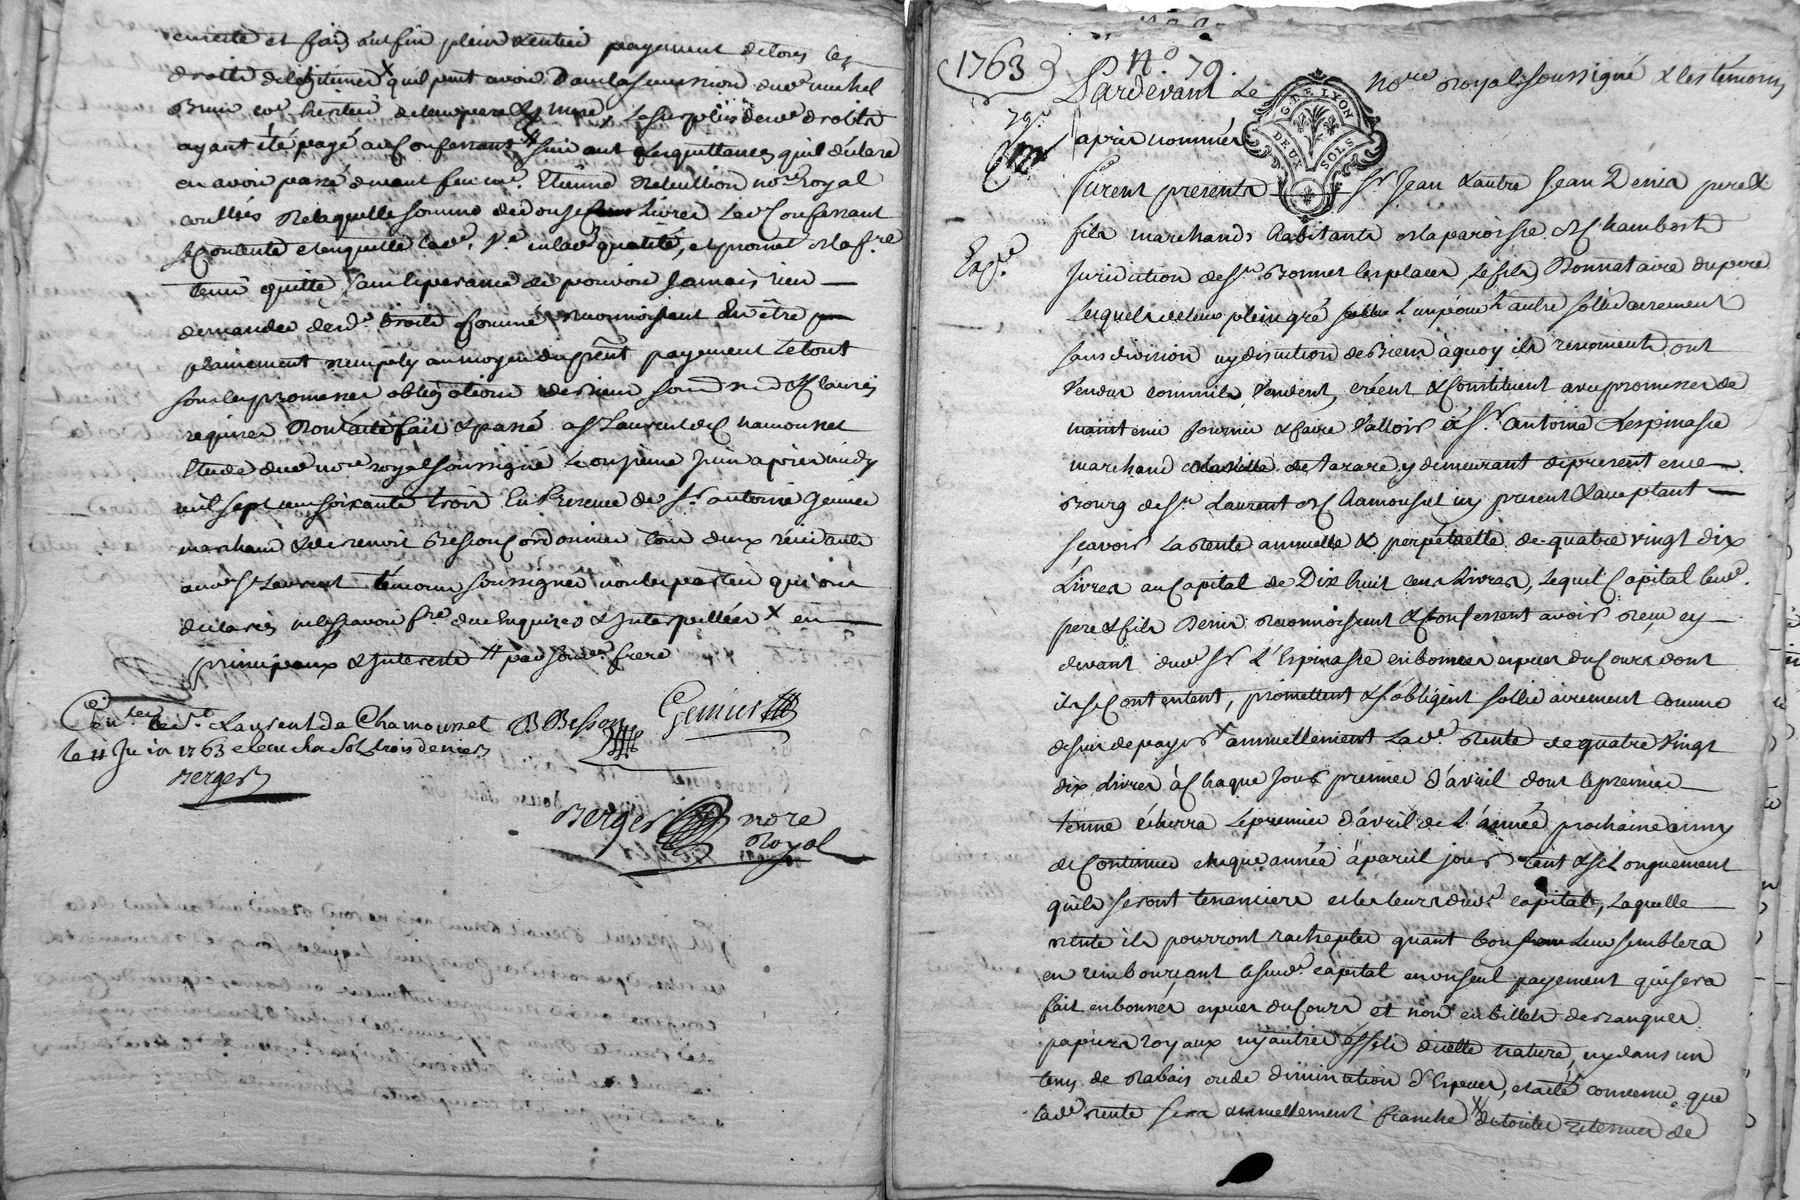 et fait enfin plein & entier payement de tous les
droits de légitime x qu'il peut avoir dans la succession dud. michel
Brun heritier de leurs pere & mere, le surplus desd. droits
ayant été payé au Confessant # suivant les quittances qu'il déclare
en avoir passé devant feu me. Etienne notre royal
de laquelle somme de douse livres led. Confessant
se contente et en quitte lad. ve. en lad. qualité, et promet l'en fre
tenir quitte sans esperance de pouvoir jamais rien
demander desd. droits & somme reconnoissant en être
plainement remply au moyen du prént payement le tout
sous les promesses obligations de biens & clauses
requises fait & passé a St Laurent de Chamousset
Etude dud. nore royal soussigné le onsieme juin après midy
mil sept cent soixante trois En Presence de Sr. antoine Genier
marchand & de benoit Besson Cordonnier tous deux résidants
aud. St Laurent témoins soussignés non les parties qui ont
déclaré ne sçavoir fre de ce Enquises & Interpellées x en
principaux & Interests # par sond. frere
Con.lé à St. Laurent de Chamousset
le 11 Juin 1763 trois deniers
Berger
B Besson
Genier
Berger nore
Royal
1763
N.o 79.
79.e
Pardevant Le nore royal soussigné & les témoins
après nommés
G. DE LYON
DEUX SOLS
furent presents Sr Jean & autre Jean Denis pere &
fils marchands habitants de la paroisse de Chambost
Exp.é
Juridiction de St. Bonnet les places, le fils Donnataire du pere
Lesquels de leur plein gré l'un pour l'autre sollidairement
sans division ny discution de Biens à quoy ils renoncent ont
vendus comme ils vendent, créent & Constituent avec promesses de
maintenir fournir & faire valloir à Sr. antoine Lespinasse
marchand de la ville de tarare y demeurant de present en ce
Bourg de St. Laurent de Chamousset icy present & acceptant
sçavoir La Rente annuelle & perpetuelle de quatre vingt dix
Livres au Capital de Dix huit cens Livres, lequel Capital lesd.
pere & fils Denis reconnoissent & Confessent avoir reçu cy
devant dud. Sr L'Espinasse en bonnes especes du Cours dont
ils se Contentent, promettent & s'obligent sollidairement comme
dessus de payer x annuellement lad. Rente de quatre vingt
dix Livres à Chaque jour premier d'avril dont le premier
terme écherra le premier d'avril de l'année prochaine ainsy
de Continuer chaque année à pareil jour tant & si Longuement
qu'ils seront tenanciers desd. capital, Laquelle
rente ils pourront rachepter quant bon Leur semblera
en remboursant lesd. capital en un seul payement qui sera
fait en bonnes especes du Cours et non en billets de Banques
papiers royaux ny autres effets de telle nature, ny dans un
tems de Rabais ou de diminution d'Especes, et a été convenu que
lad. rente sera annuellement franche # de toutes retenues de